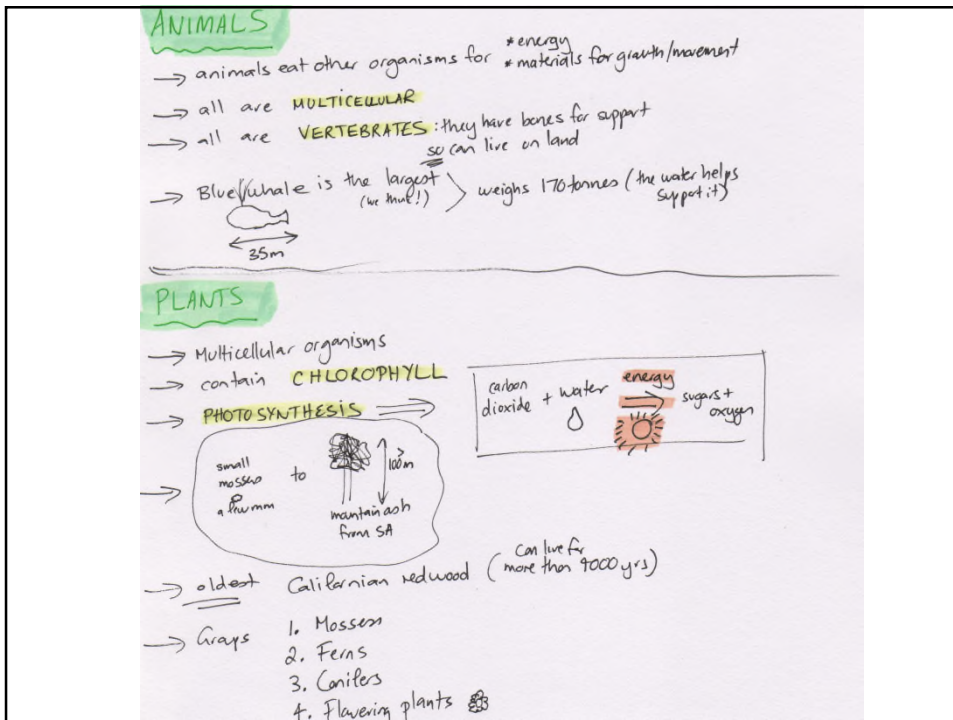 ANIMALS
→ animals eat other organisms for * energy
* materials for growth/movement
→ all are MULTICELLULAR
→ all are VERTEBRATES: they have bones for support
so can live on land
→ Blue whale is the largest
(we think!)
weighs 170 tonnes (the water helps
support it)
35m
PLANTS
→ Multicellular organisms
→ contain CHLOROPHYLL
→ PHOTOSYNTHESIS
carbon
dioxide + water
energy
sugars +
oxygen
→ small
mosses
a few mm
to
100m
mountain ash
from SA
→ oldest Californian redwood (can live for
more than 4000 yrs)
→ Groups 1. Mosses
2. Ferns
3. Conifers
4. Flowering plants